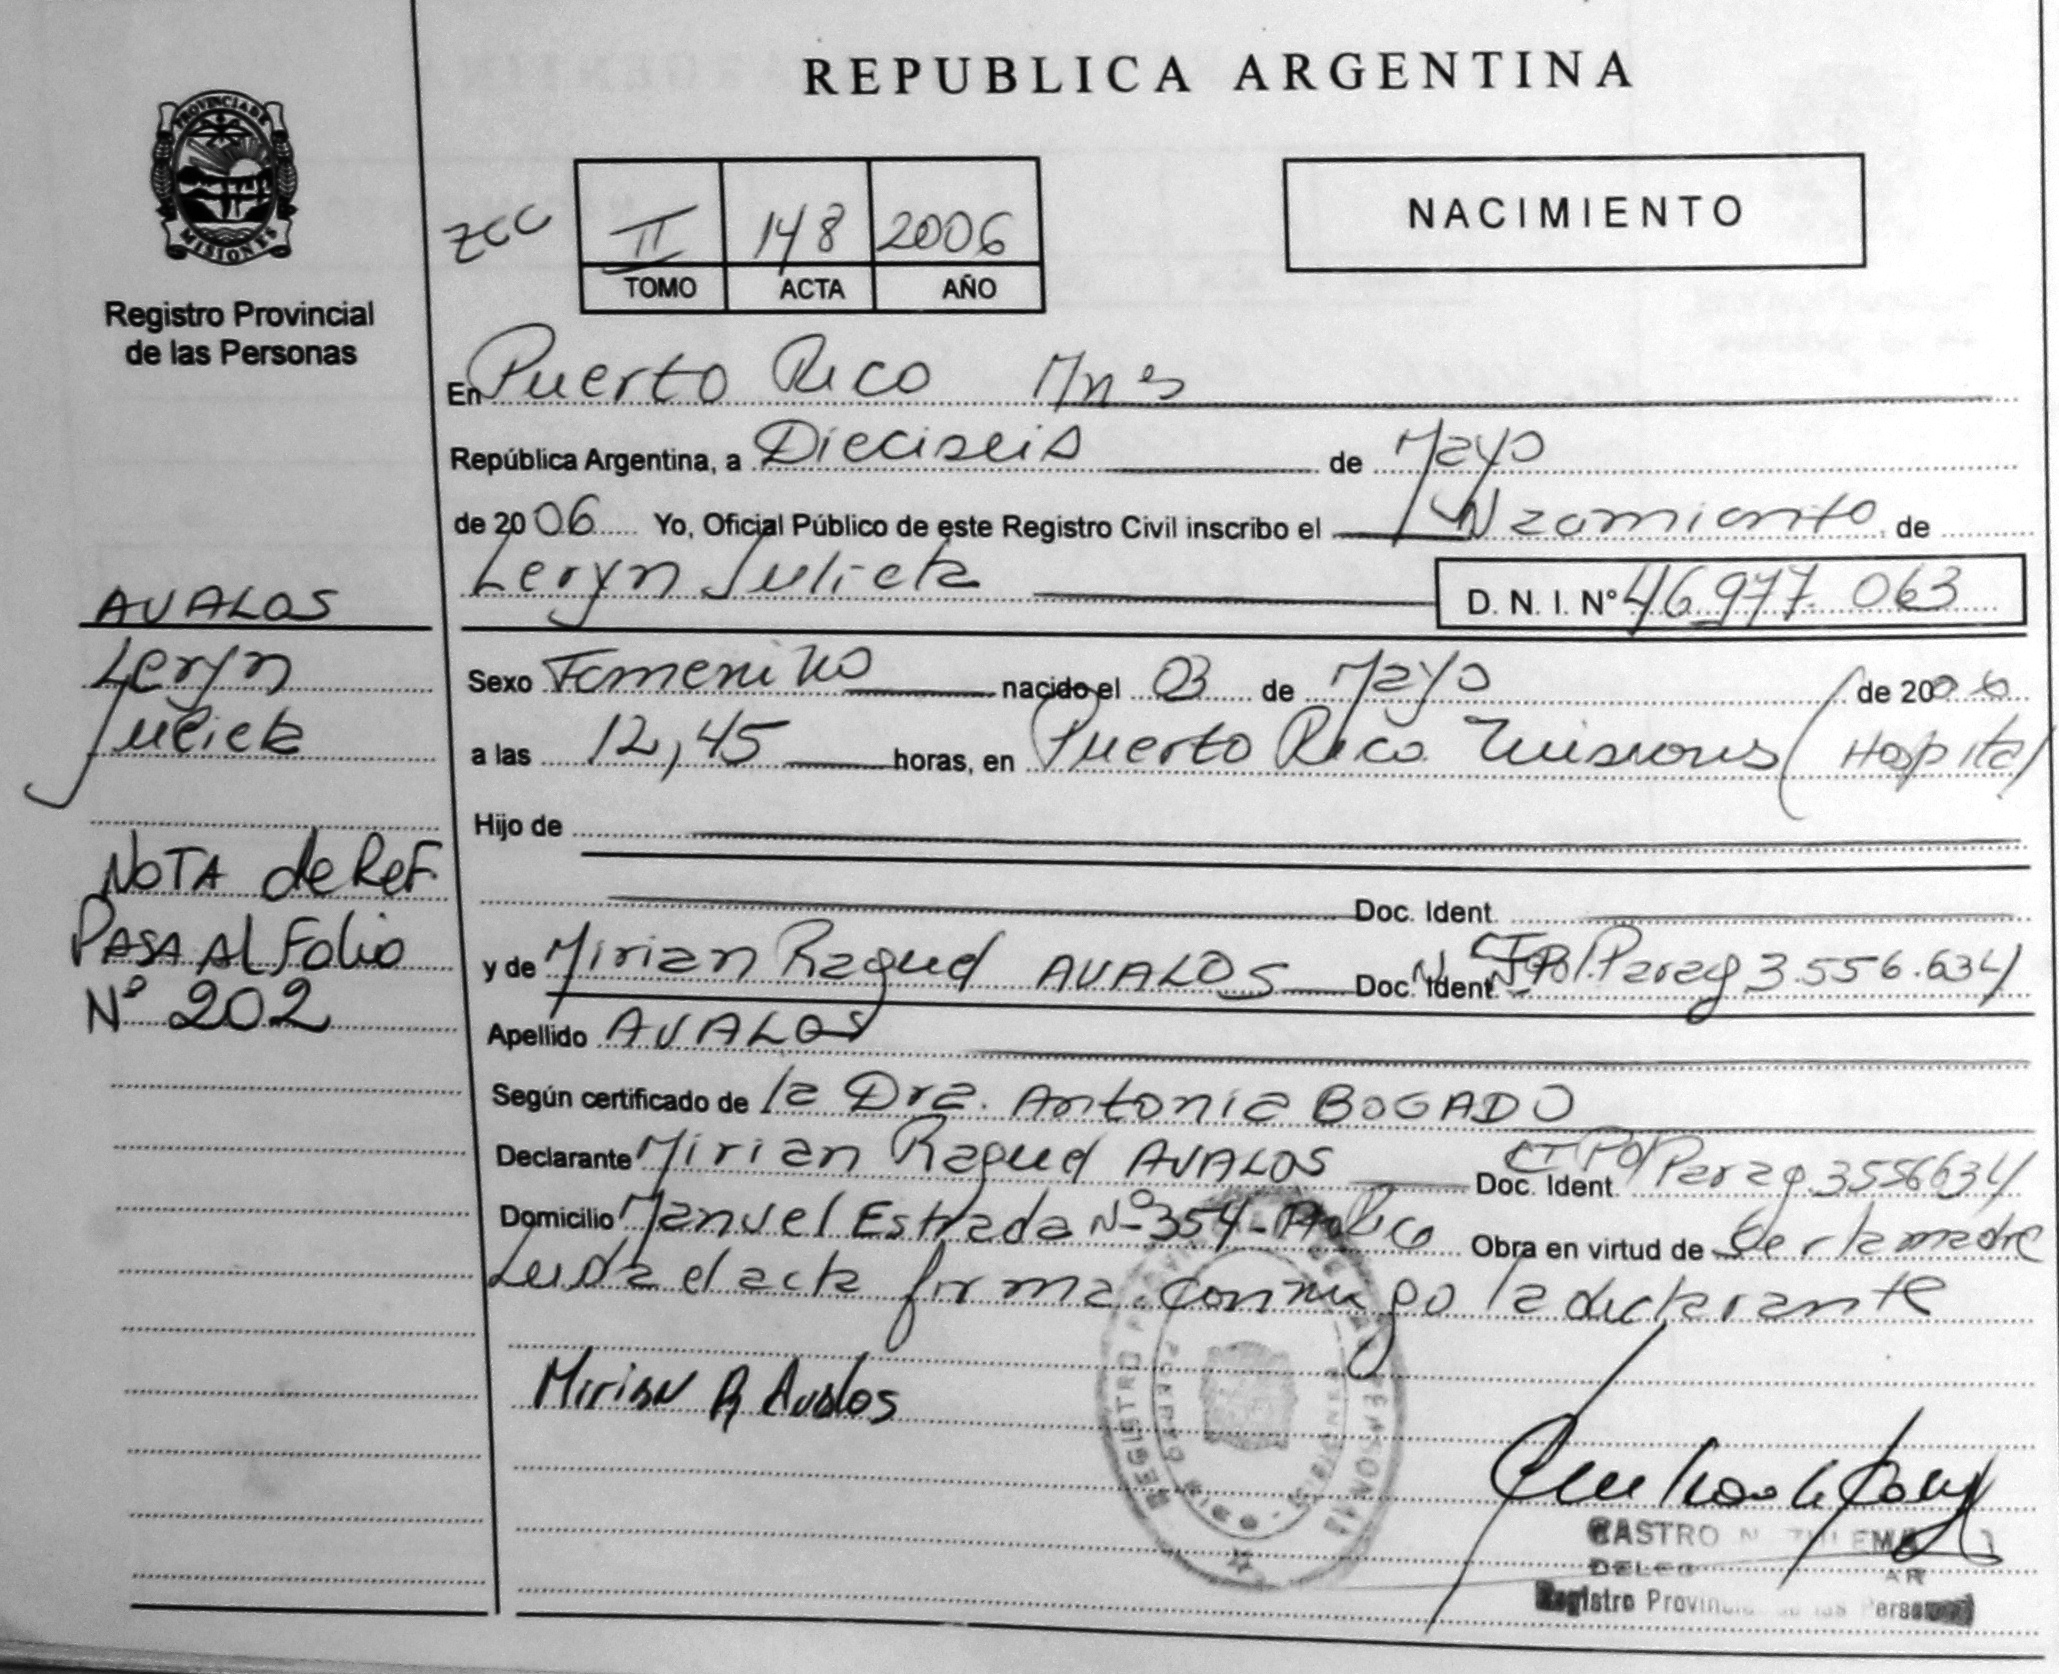 REPUBLICA ARGENTINA
PROVINCIA DE
MISIONES
Registro Provincial
de las Personas
NACIMIENTO
zcc
II 148 2006
TOMO ACTA AÑO
En Puerto Rico Mnes
República Argentina, a Dieciseis de Mayo
de 2006 Yo, Oficial Público de este Registro Civil inscribo el Nacimiento de
Leryn Julieta D. N. I. N° 46.977.063
AVALOS
Leryn
Julieta
Sexo Femenino nacido el 03 de Mayo de 2006
a las 12,45 horas, en Puerto Rico Misiones (Hospital
Hijo de
Doc. Ident.
NOTA de Ref.
PASA Al Folio
Nº 202
y de Mirian Raquel AVALOS Doc. Ident. Pol. Parag 3.556.634
Apellido AVALOS
Según certificado de la Dra. Antonia BOGADO
Declarante Mirian Raquel AVALOS Doc. Ident. Pol Parag 3556634
Domicilio Manuel Estrada Nº 354 - Pto Rico Obra en virtud de Ser la madre
Leida el acta firma conmigo la declarante
Mirian R Avalos
REGISTRO
PUERTO RICO
CASTRO N. ZULEMA
Registro Provincial de las Personas